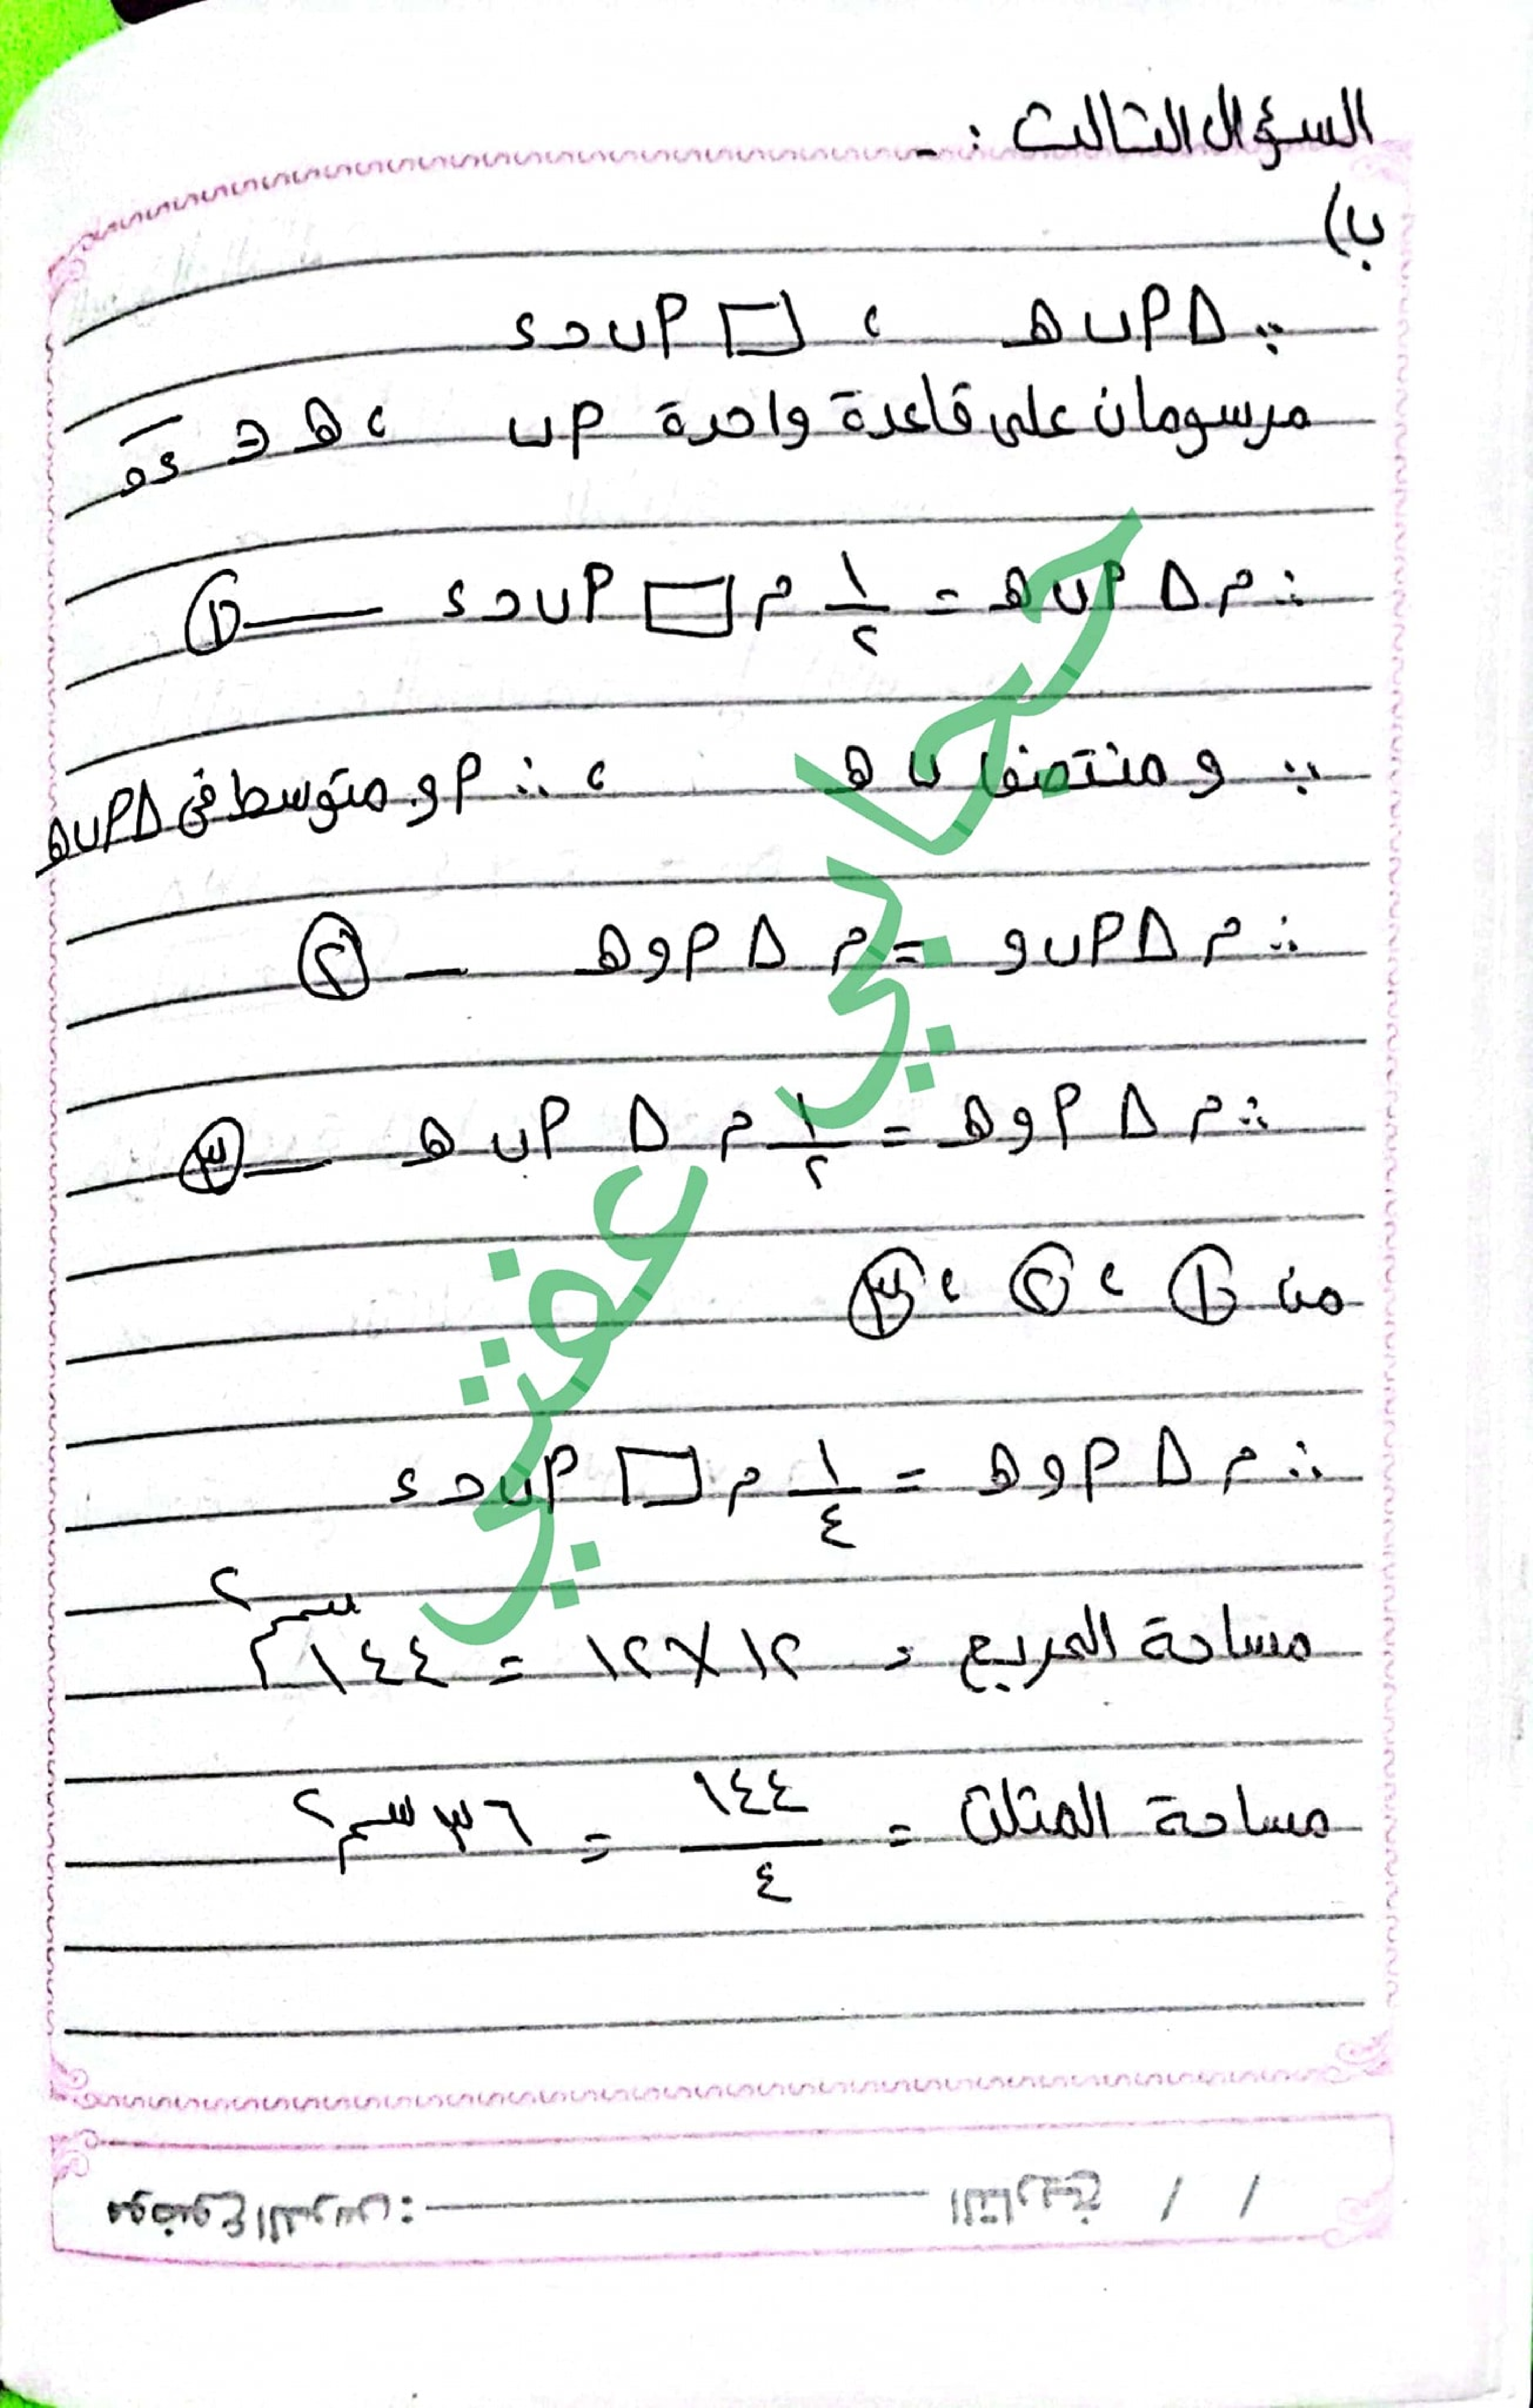 السؤال الثالث :-
ب)
∵ △ أ ب هـ ، □ أ ب حـ ء
مرسومان على قاعدة واحدة أ ب ، هـ ∋
∴ م △ أ ب هـ = ١/٢ م □ أ ب حـ ء — ①
∵ و منتصف ب هـ ، ∴ أ و متوسط فى △ أ ب هـ
∴ م △ أ ب و = م △ أ و هـ — ②
∴ م △ أ و هـ = ١/٢ م △ أ ب هـ — ③
من ① ، ② ، ③
∴ م △ أ و هـ = ١/٤ م □ أ ب حـ ء
مساحة المربع = ١٢ × ١٢ = ١٤٤ سم٢
مساحة المثلث = ١٤٤/٤ = ٣٦ سم٢
موضوع الدرس: التاريخ / /